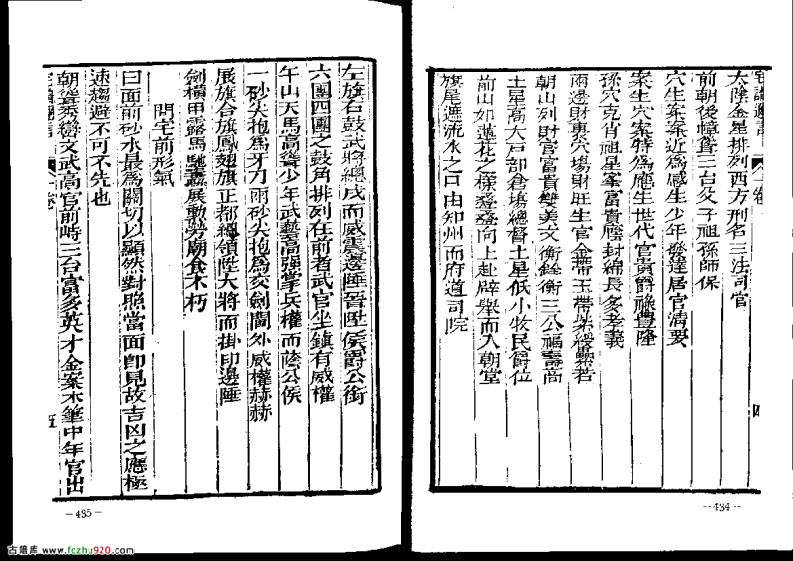 太陰金星排列西方刑名三法司官
前朝後幛聳三台父子祖孫師保
穴生案案近為感生少年發達居官清要
案生穴案特為應生世代官貴爵祿豐隆
孫穴克肖祖星峯富貴塵封綿長多孝義
兩邊財裏穴場財旺生官金帶玉帶紫綬纍若
朝山列財官富貴雙美文衡銓衡三公福壽高
土星高大戶部倉塲總督土星低小牧民爵位
前山如蓮花之樣叠叠向上赴辟舉而入朝堂
旗尾遞流水之口由知州而府道司院
四
—434—
左旗右鼓武將總戎而威震邊陲晉陞侯爵公銜
六團四團之鼓角排列在前者武官坐鎮有威權
午山天馬高聳少年武藝高強掌兵權而蔭公侯
一砂尖抱為牙刀兩砂尖抱為交劍閫外威權赫赫
展旗合旗鳳翅旗正都總領陞大將而掛印邊陲
劍橫甲露馬馳纛展動勞廟食不朽
問宅前形氣
曰面前砂水最為關切以顯然對照當面即見故吉凶之應極
速趨避不可不先也
朝聳秀巒文武高官前峙三台富多英才金案木筆中年官出
五
—435—
古墳库 www.fczhu920.com